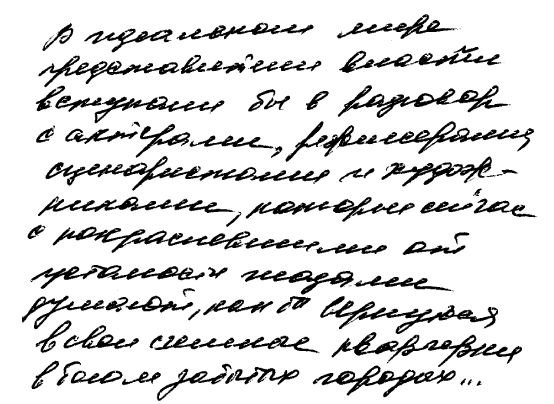 В идеальном мире
представители власти
вступали бы в разговор
с актёрами, режиссёрами,
сценаристами и худож-
никами, которые сейчас
с покрасневшими от
усталости глазами
думают, как бы вернуться
в свои съемные квартирки
в богом забытых городах...